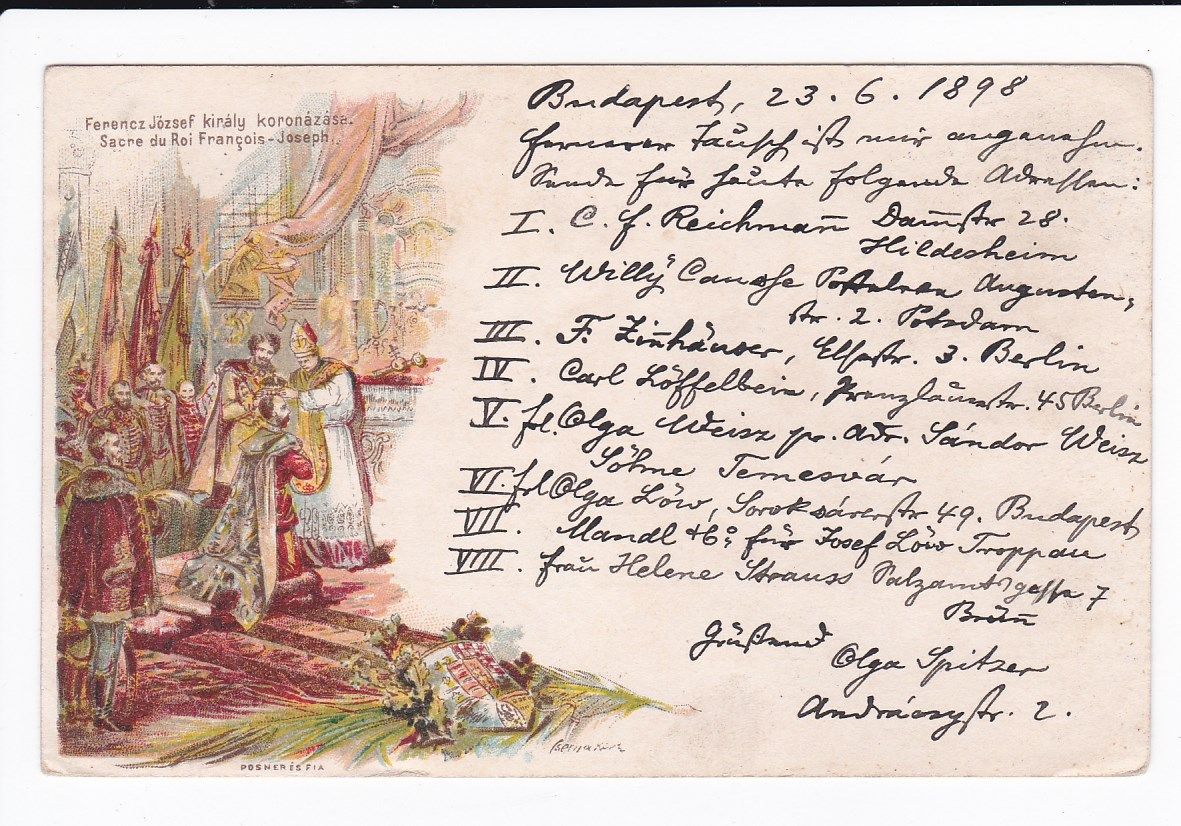 Ferencz József király koronázása.
Sacre du Roi François-Joseph.
Budapest, 23. 6. 1898
Fernerer Tausch ist mir angenehm.
Sende für heute folgende Adressen:
I. C. F. Reichmañ Dam̃str 28.
Hildesheim
II. Willÿ Causse Augusten-
str. 2. Potsdam
III. F. Ziñhäuser, Elsasstr. 3. Berlin
IV. Carl Löffelbein, Prenzlauerstr. 45 Berlin
V. Frl. Olga Weisz pr. Adr. Sándor Weisz
Söhne Temesvár
VI. Frl Olga Löw, Soroksárerstr 49. Budapest
VII. Mandl & Co für Josef Löw Troppau
VIII. Frau Helene Strauss Salzamtsgasse 7
Brün̄
Grüßend
Olga Spitzer
Andrássystr. 2.
POSNER ÉS FIA